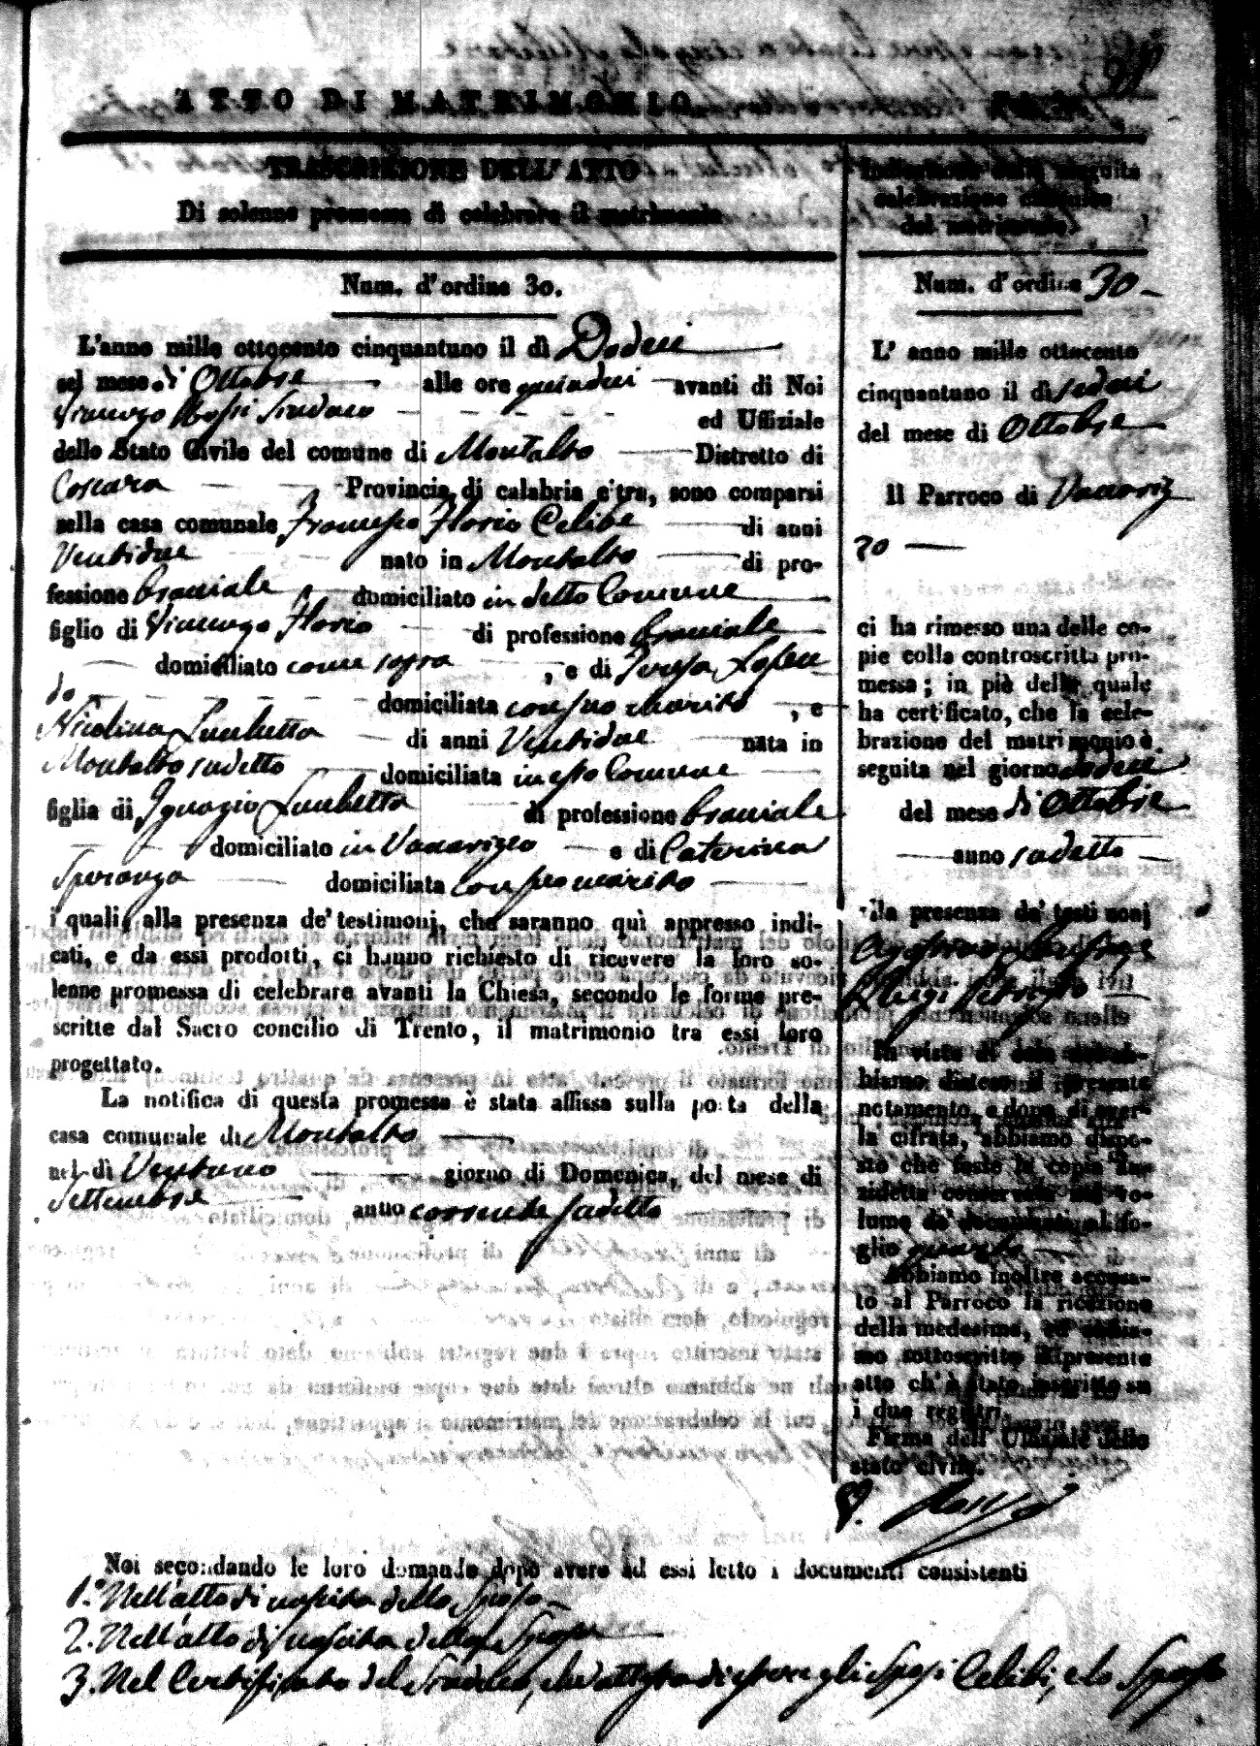 ATTO DI MATRIMONIO
TRASCRIZIONE DELL'ATTO
Di solenne promessa di celebrare il matrimonio
Num. d'ordine 30.
L'anno mille ottocento cinquantuno il dì Dodici
nel mese di Ottobre alle ore quindici avanti di Noi
Vincenzo Rossi Sindaco ed Uffiziale
dello Stato Civile del comune di Montalto Distretto di
Cosenza Provincia di calabria citra, sono comparsi
nella casa comunale Francesco Florio Celibe di anni
Ventidue nato in Montalto di pro-
fessione bracciale domiciliato in detto Comune
figlio di Vincenzo Florio di professione bracciale
domiciliato come sopra, e di Teresa
domiciliata con suo marito, e
Nicolina di anni Ventidue nata in
Montalto sudetto domiciliata in esso Comune
figlia di Ignazio di professione bracciale
domiciliato in Vaccarizzo e di Caterina
Speranza domiciliata con suo marito
i quali, alla presenza de' testimonj, che saranno quì appresso indi-
cati, e da essi prodotti, ci hanno richiesto di ricevere la loro so-
lenne promessa di celebrare avanti la Chiesa, secondo le forme pre-
scritte dal Sacro concilio di Trento, il matrimonio tra essi loro
progettato.
La notifica di questa promessa è stata affissa sulla porta della
casa comunale di Montalto
nel dì Ventuno giorno di Domenica, del mese di
Settembre anno corrente sudetto
Indicazione della seguita
celebrazione canonica
del matrimonio.
Num. d'ordine 30
L' anno mille ottocento
cinquantuno il dì sedici
del mese di Ottobre
Il Parroco di Vaccariz
zo
ci ha rimesso una delle co-
pie colla controscritta pro-
messa; in piè della quale
ha certificato, che la cele-
brazione del matrimonio è
seguita nel giorno sedici
del mese di Ottobre
anno sudetto
alla presenza de' testimonj
Luigi
In vista di essa noi ab-
biamo disteso il presente
notamento, e dopo di aver-
la cifrata, abbiamo dispo-
sto che fosse la copia an-
zidetta conservata nel vo-
lume de' documenti al fo-
glio quarto
Abbiamo inoltre accusa-
to al Parroco la ricezione
della medesima, ed abbia-
mo sottoscritto il presente
atto ch'è stato inscritto su
i due registri.
Firma dell' Uffiziale dello
stato civile.
V. Rossi
Noi secondando le loro domande dopo avere ad essi letto i documenti consistenti
1.° Nell'atto di nascita dello Sposo
2. Nell'atto di nascita della Sposa
3. Nel Certificato del Sindaco, che attesta di essere gli Sposi Celibi, e lo Sposo